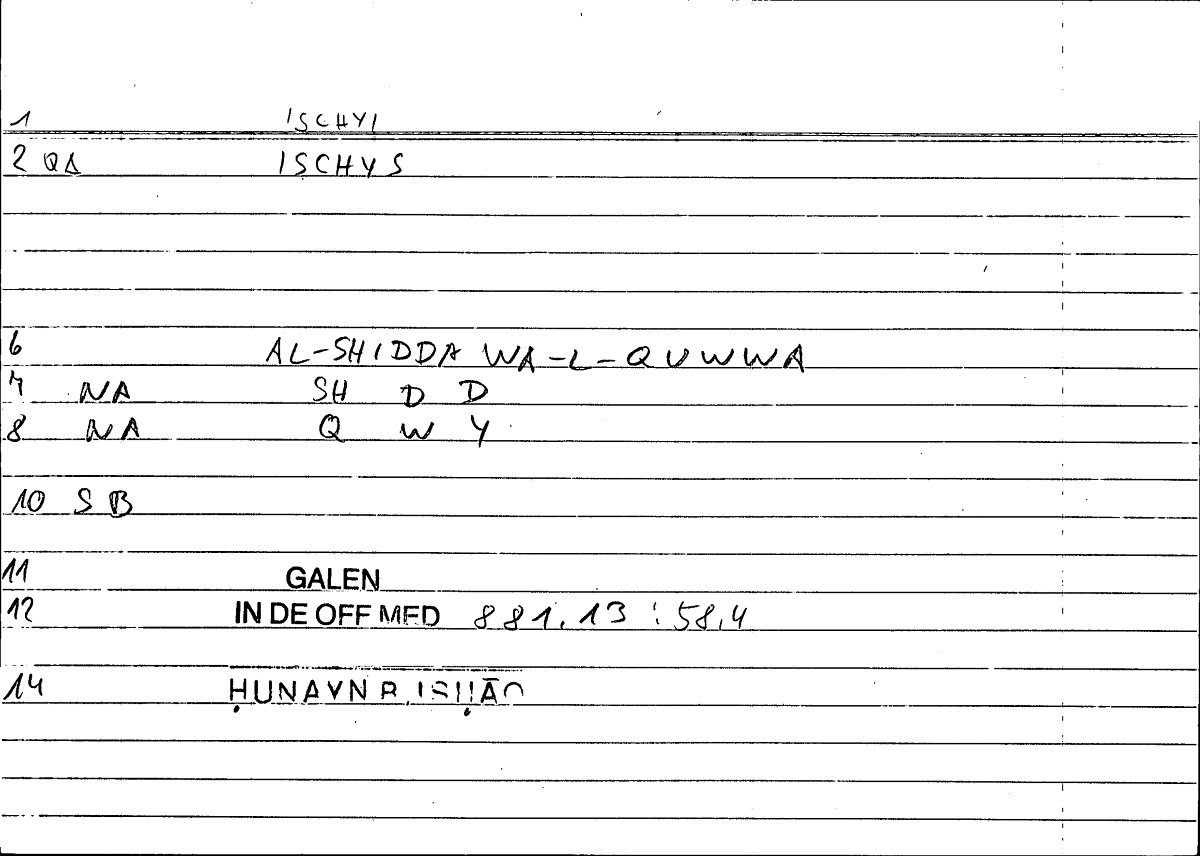 1 ISCHYI
2 QA ISCHYS
6 AL-SHIDDA WA-L-QUWWA
7 NA SH D D
8 NA Q W Y
10 SB
11 GALEN
12 IN DE OFF MED 881.13 : 58,4
14 ḤUNAYN B. ISḤĀQ